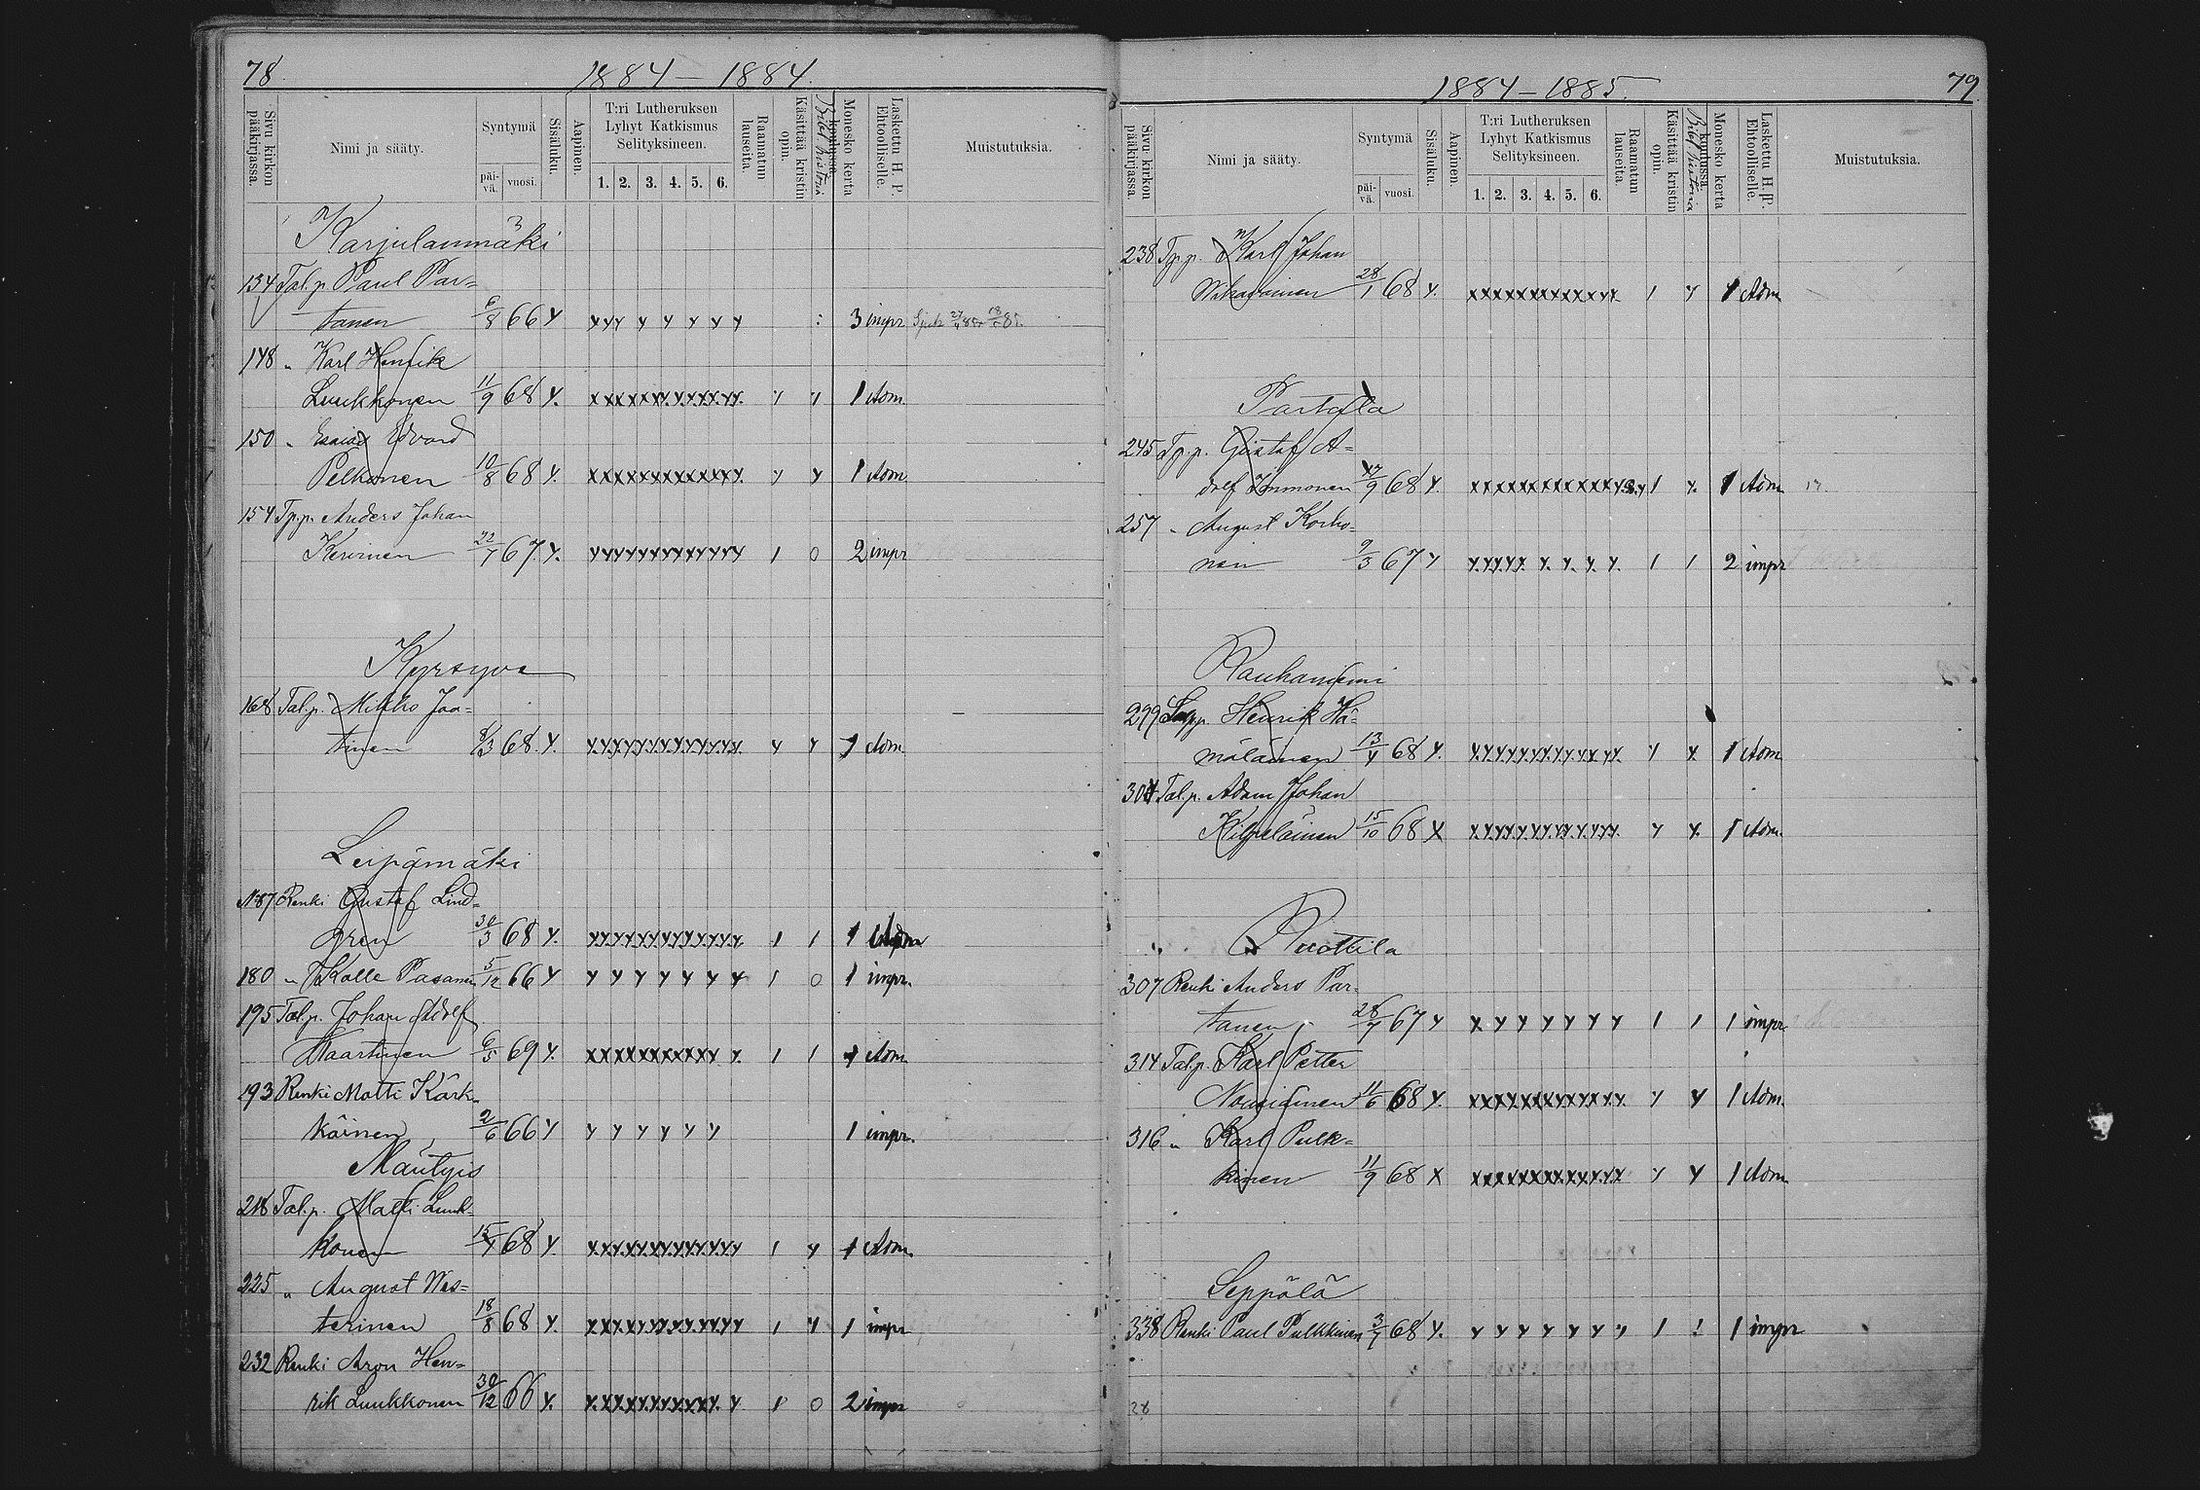 78.
1884 — 1884.
Sivu kirkon pääkirjassa.
Nimi ja sääty.
Syntymä
päivä.
vuosi.
Sisäluku.
Aapinen.
T:ri Lutheruksen
Lyhyt Katkismus
Selityksineen.
1. 2. 3. 4. 5. 6.
Raamatun lauseita.
Käsittää kristin opin.
Bibel historia
Monesko kerta koulussa.
Laskettu H. P. Ehtoolliselle.
Muistutuksia.
Karjulanmäki
134 Tal.p. Paul Par=
tanen 6/8 66 3 impr
148 " Karl Henrik
Luukkonen 11/9 68 1 Adm.
150 " Esaias Edvard
Pelkonen 10/8 68 1 Adm.
154 Tp.p. Anders Johan
Kervinen 22/7 67 1 0 2 impr
Kyrsyvä
168 Tal.p. Mikko Jaa=
tinen 8/3 68 1 Adm.
Leipämäki
187 Renki Gustaf Lind=
gren 30/3 68 1 1 1
180 " Kalle Pasanen 5/12 66 1 0 1 impr.
195 Tal.p. Johan Adolf
Haartinen 6/5 69 1 1 1 Adm
193 Renki Matti Kärk=
käinen 2/6 66 1 impr.
Mäntyis
218 Tal.p. Matti Luuk=
konen 15/4 68 1 Adm.
225 " August Wes=
terinen 18/8 68 1 impr
232 Renki Aron Hen=
rik Luukkonen 30/12 66 0 2 impr
1884 — 1885.
79
Sivu kirkon pääkirjassa.
Nimi ja sääty.
Syntymä
päivä.
vuosi.
Sisäluku.
Aapinen.
T:ri Lutheruksen
Lyhyt Katkismus
Selityksineen.
1. 2. 3. 4. 5. 6.
Raamatun lauseita.
Käsittää kristin opin.
Bibel historia
Monesko kerta koulussa.
Laskettu H. P. Ehtoolliselle.
Muistutuksia.
238 Tp.p. Karl Johan
28/1 68 1 Adm
Partala
245 Tp.p. Gustaf A=
dolf Immonen 17/9 68 1 Adm
257 " August Korho=
nen 9/3 67 1 1 2 impr
Rauhaniemi
299 Henrik Hä=
mäläinen 13/4 68 1 Adm
304 Tal.p. Adam Johan
Kilpeläinen 15/10 68 1 Adm.
Ruottila
307 Renki Anders Par=
tanen 28/7 67 1 1 1 impr
314 Tal.p. Karl Petter
Nousiainen 11/6 68 1 Adm.
316 " Karl Pulk=
kinen 11/9 68 1 Adm
Seppälä
338 Renki Paul Pulkkinen 3/7 68 1 1 1 impr
28